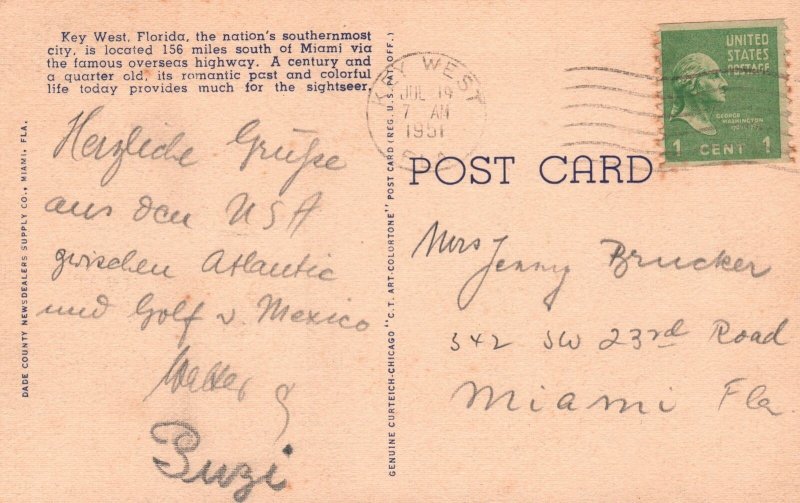 Key West, Florida, the nation's southernmost
city, is located 156 miles south of Miami via
the famous overseas highway. A century and
a quarter old, its romantic past and colorful
life today provides much for the sightseer.
Herzliche Grüße
aus den USA
zwischen Atlantic
und Golf v. Mexico
Walter
Suzi
DADE COUNTY NEWSDEALERS SUPPLY CO., MIAMI, FLA.
GENUINE CURTEICH-CHICAGO "C. T. ART-COLORTONE" POST CARD (REG. U. S. PAT. OFF.)
KEY WEST
JUL 19
7 AM
1951
FLA.
UNITED
STATES
POSTAGE
GEORGE
WASHINGTON
1 CENT 1
POST CARD
Mrs Jenny Brucker
342 SW 23rd Road
Miami Fla